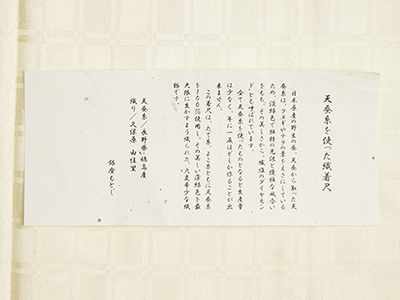 天蚕糸を使った織着尺
日本原産の野生の蚕、天蚕から取った天
蚕糸は、クヌギやナラの葉をえさにしている
ため、淡緑色で独特の光沢と優雅な風合い
をもち、その美しさから、繊維のダイヤモン
ド、とも呼ばれています。
全て天蚕糸を使ったものとなると生産量
は少なく、年に一反ほどしか作ることが出
来ません。
この着尺は、たて糸、よこ糸ともに天蚕糸
を100%使用し、その美しい薄緑色を最
大限に生かすよう織られた、大変希少な織
物です。
天蚕糸／長野県穂高産
織り／久保原 由佳里
銀座もとじ